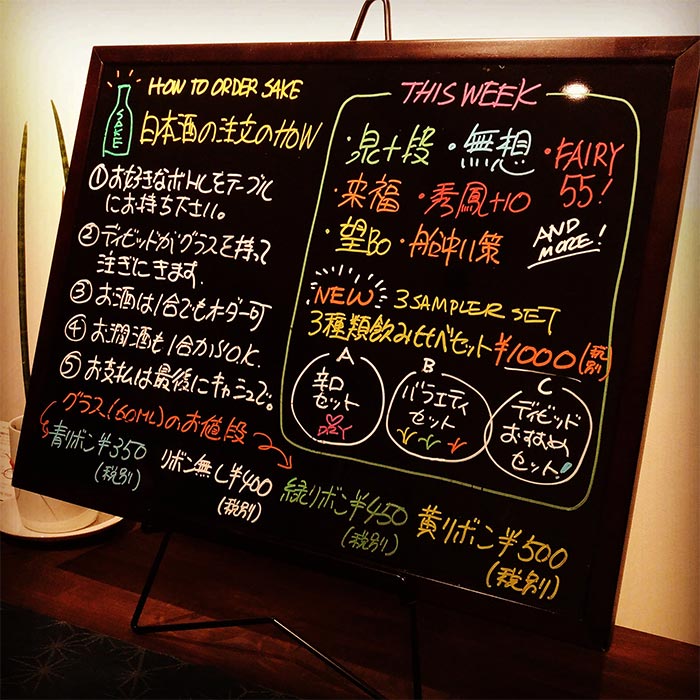 HOW TO ORDER SAKE
SAKE
日本酒の注文のHOW
①お好きなボトルをテーブル
にお持ち下さい。
②ディビッドがグラスを持って
注ぎにきます.
③お酒は1合でもオーダー可
④お潤酒も1合からO.K.
⑤お支払は最後にキャシュで。
グラス(60ML)のお値段
青リボン¥350
(税別)
リボン無し¥400
(税別)
緑リボン¥450
(税別)
黄リボン¥500
(税別)
THIS WEEK
・泉十段 ・無想 ・FAIRY
55!
・来福 ・秀鳳+10
・望BO ・船中八策
AND
MORE!
NEW 3 SAMPLER SET
3種類飲み比べセット ¥1000(税別)
A
辛口
セット
DRY
B
バラエティ
セット
C
ディビッド
おすすめ
セット!